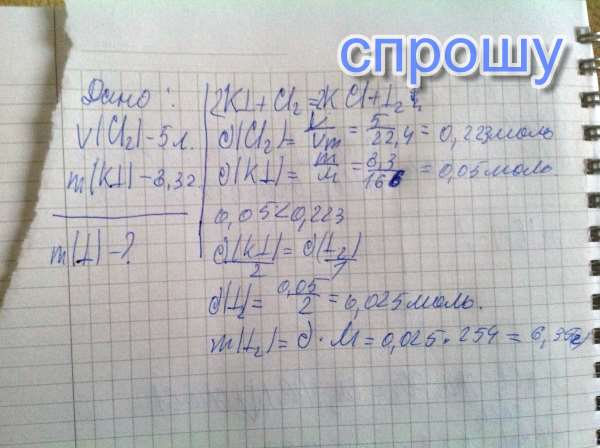 спрошу
Дано:
V(Cl₂)-5л.
m(KI)-8,3г.
m(I)-?
2KI+Cl₂=2KCl+I₂
∂(Cl₂)= V/Vm = 5/22,4 = 0,223моль
∂(KI)= m/M = 8,3/166 = 0,05моль
0,05<0,223
∂(KI)/2 = ∂(I₂)/1
∂(I₂= 0,05/2 = 0,025моль.
m(I₂)= ∂·M = 0,025·254 = 6,35г